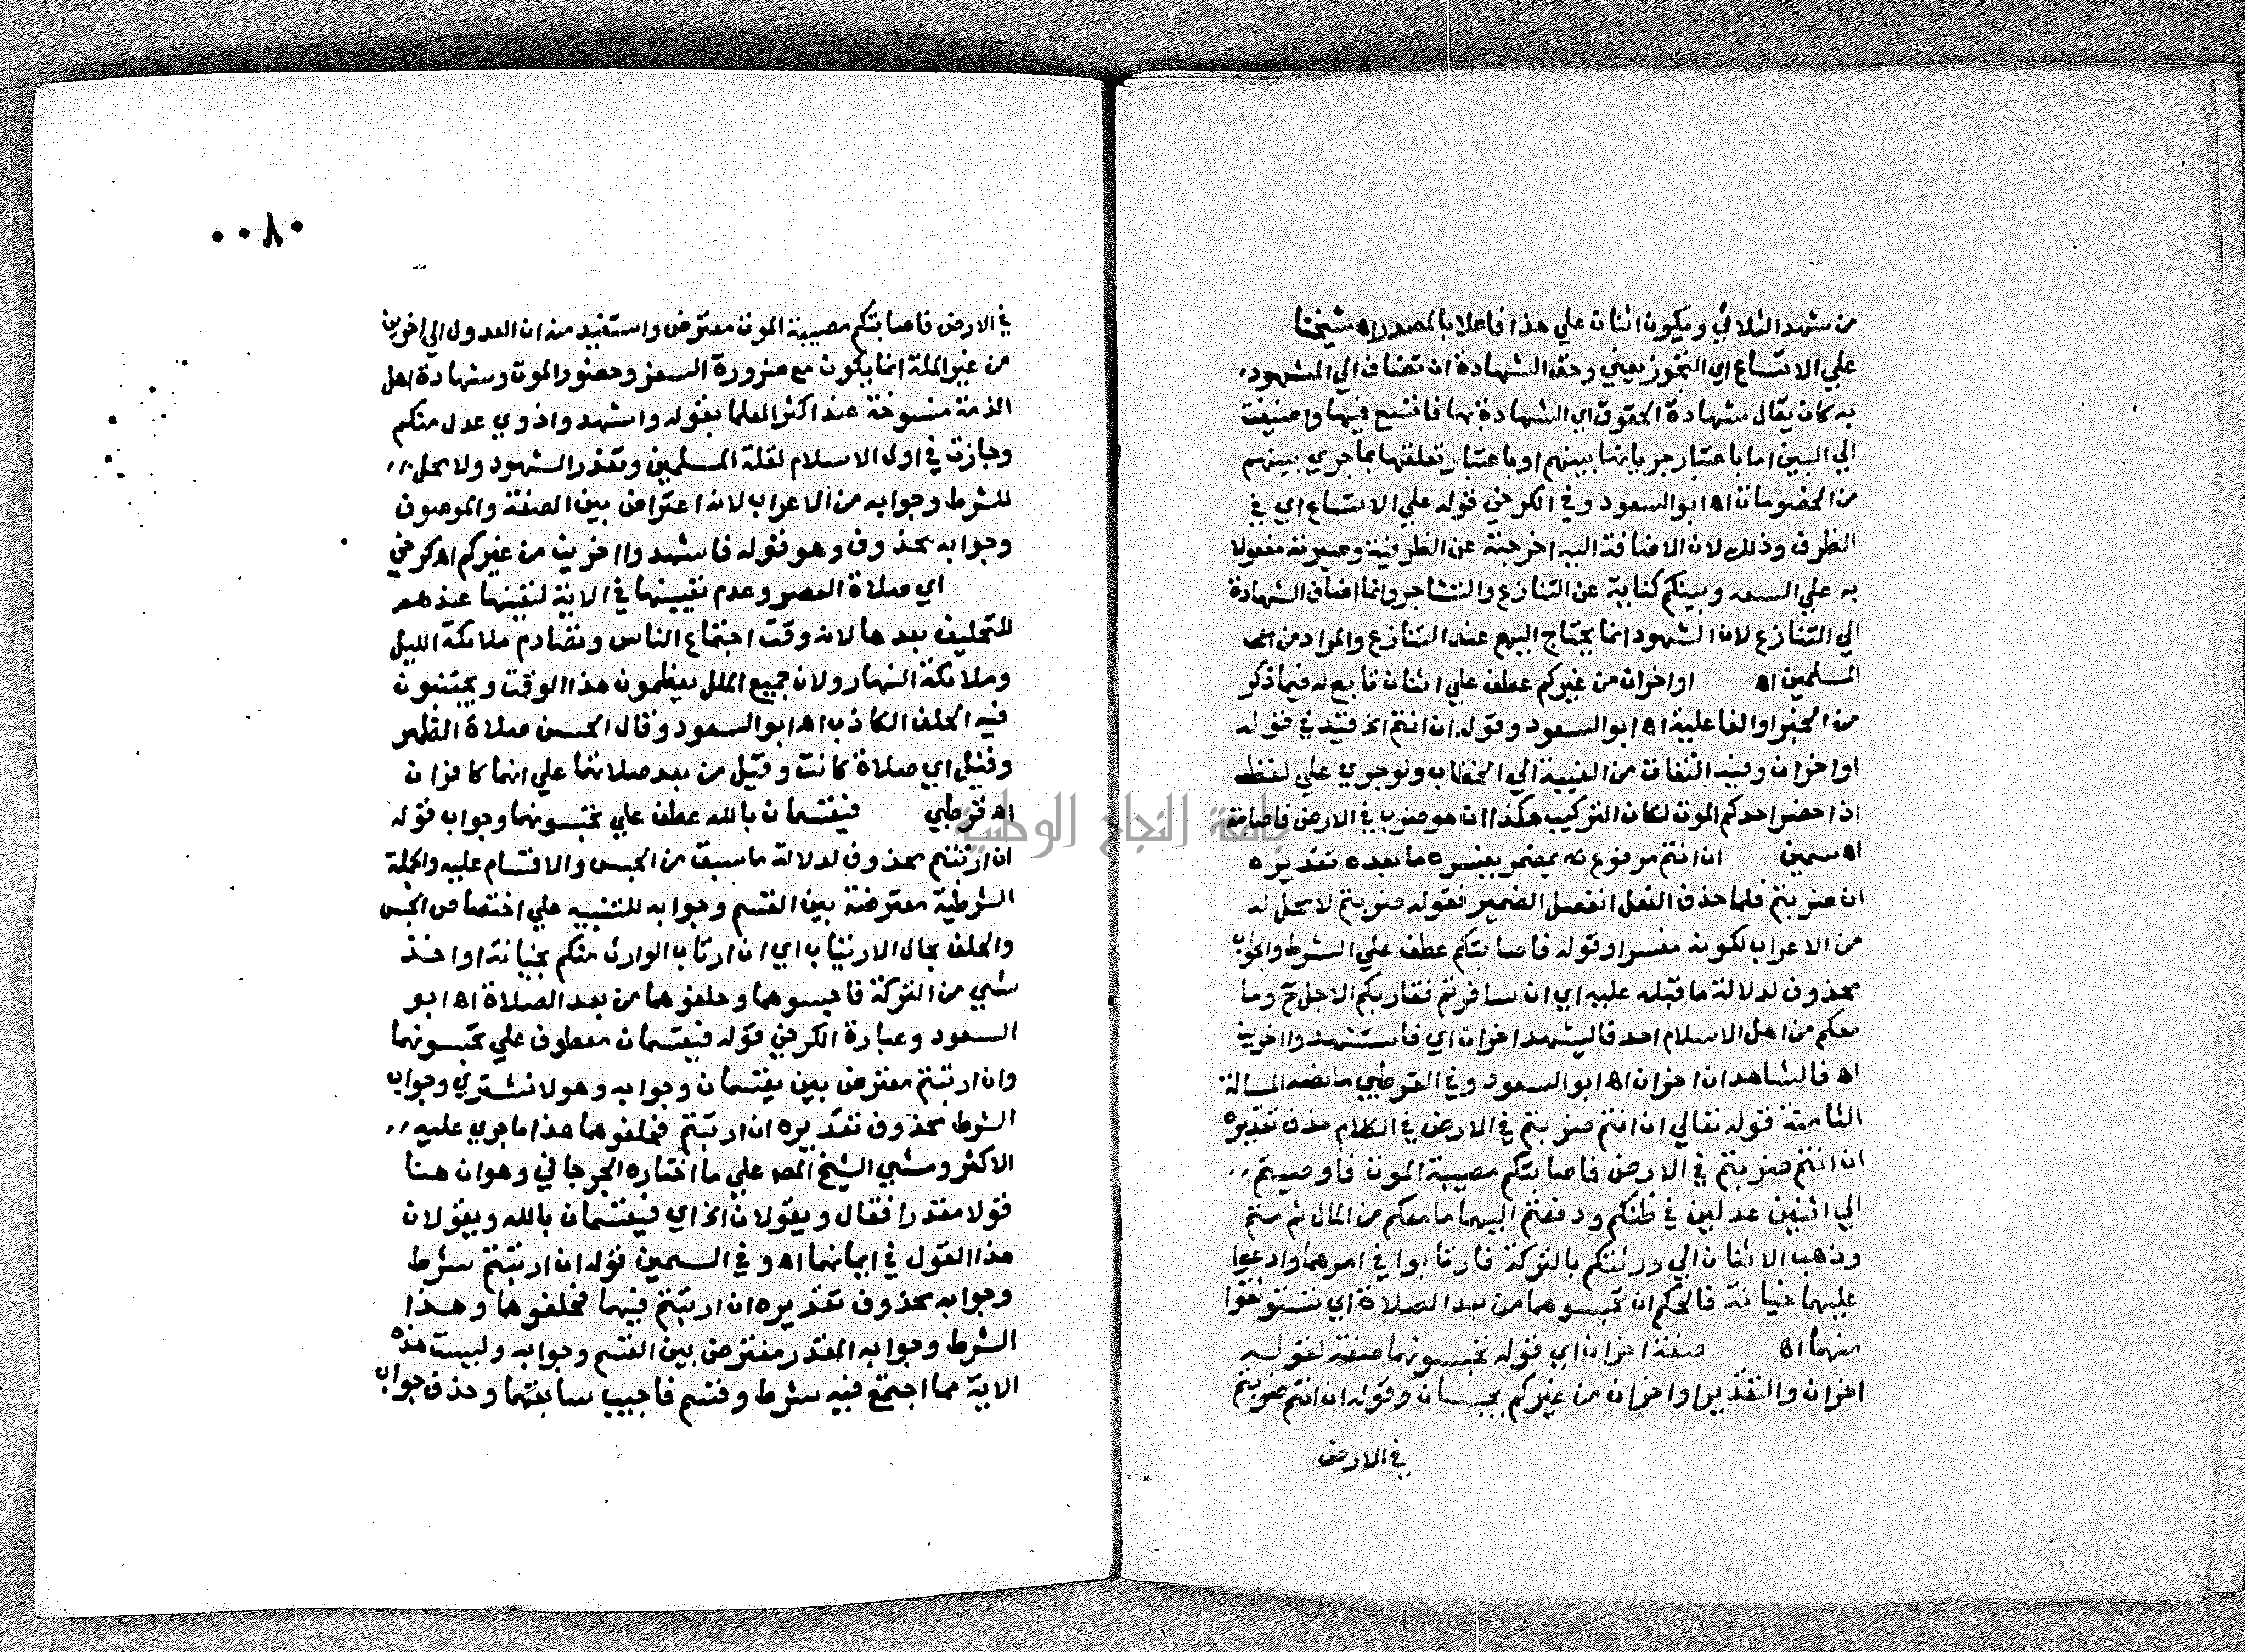 من شهد الثلاثي ويكون اثنان علي هذا فاعلا بالمصدر اه شيخنا
علي الاتساع اي التجوز يعني وحق الشهادة ان تضاف الي المشهود
به كان يقال شهادة الحقوق اي الشهادة بها فاتسع فيها واضيفت
الي البين اما باعتبار جريانها بينهم او باعتبار تعلقها بما جري بينهم
من الخصومات اه ابو السعود وفي الكرخي قوله علي الاتساع اي في
الظرف وذلك لان الاضافة اليه اخرجته عن الظرفية وصيرته مفعولا
به علي السعه وبينكم كناية عن التنازع والتشاجر وانما اضاف الشهادة
الي التنازع لان الشهود انما يحتاج اليهم عند التنازع والمراد من
المسلمين اه او اخران من غيركم عطف علي اثنان تابع له فيما ذكر
من الخبر او الفاعلية اه ابو السعود وقوله ان انتم الخ قيد في قوله
او اخران وفيه التفات من الغيبة الي الخطاب ولو جري علي لفظ
اذا حضر احدكم الموت لكان التركيب هكذا ان هو ضرب في الارض فاصابته
اه سمين ان انتم مرفوع بمضمر يفسره ما بعده تقديره
ان ضربتم فلما حذف الفعل انفصل الضمير فقوله ضربتم لا محل له
من الاعراب لكونه مفسرا وقوله فاصابتكم عطف علي الشرط والجواب
محذوف لدلالة ما قبله عليه اي ان سافرتم فقاربكم الاجل ح وما
معكم من اهل الاسلام احد فاليشهد اخران اي فاستشهدوا اخرين
اه فالشاهدان اخران اه ابو السعود وفي القرطبي ما نصه المسالة
الثامنة قوله تعالي ان انتم ضربتم في الارض في الكلام حذف تقديره
ان انتم ضربتم في الارض فاصابتكم مصيبة الموت فاوصيتم
الي اثنين عدلين في ظنكم ودفعتم اليهما ما معكم من المال ثم متم
وذهب الاثنان الي ورثتكم بالتركة فارتابوا في امرهما وادعوا
عليهما خيانة فالحكم ان تحبسوهما من بعد الصلاة اي تستوثقوا
منهما اه صفة اخران اي قوله تحبسونهما صفة لقوله
اخران والتقدير او اخران من غيركم يحبسان وقوله ان انتم ضربتم
في الارض
٠٠٨٠
في الارض فاصابتكم مصيبة الموت معترض واستفيد منه ان العدول الي اخرين
من غير الملة انما يكون مع ضرورة السفر وحضور الموت وشهادة اهل
الذمة منسوخة عند اكثر العلما بقوله واشهدوا ذوي عدل منكم
وجازت في اول الاسلام لقلة المسلمين وتعذر الشهود ولا محل
للشرط وجوابه من الاعراب لانه اعتراض بين الصفة والموصوف
وجوابه محذوف وهو فقوله فاشهدوا اخرين من غيركم اه كرخي
اي صلاة العصر وعدم تعيينها في الاية لتعينها عندهم
للتحليف بعدها لانه وقت اجتماع الناس وتصادم ملائكة الليل
وملائكة النهار ولان جميع الملل يعظمون هذا الوقت ويجتنبون
فيه الحلف الكاذب اه ابو السعود وقال الحسن صلاة الظهر
وقيل اي صلاة كانت وقيل من بعد صلاتهما علي انهما كافران
اه قرطبي فيقسمان بالله عطف علي تحبسونهما وجواب قوله
ان ارتبتم محذوف لدلالة ما سبق من الحبس والاقسام عليه والجملة
الشرطية معترضة بين القسم وجوابه للتنبيه علي اختصاص الحبس
والحلف بحال الارتياب اي ان ارتاب الوارث منكم بخيانة او اخذ
شي من التركة فاحبسوهما وحلفوهما من بعد الصلاة اه ابو
السعود وعبارة الكرخي قوله فيقسمان معطوف علي تحبسونهما
وان ارتبتم معترض بين يقسمان وجوابه وهو لا نشتري وجواب
الشرط محذوف تقديره ان ارتبتم فحلفوهما هذا ما جري عليه
الاكثر ومشي الشيخ المص علي ما اختاره الجرجاني وهو ان هنا
قولا مقدرا فقال ويقولان الخ اي فيقسمان بالله ويقولان
هذا القول في ايمانهما اه وفي السمين قوله ان ارتبتم شرط
وجوابه محذوف تقديره ان ارتبتم فيهما فحلفوهما وهذا
الشرط وجوابه المقدر معترض بين القسم وجوابه وليست هذه
الاية مما اجتمع فيه شرط وقسم فاجيب سابقهما وحذف جواب
جامعة النجاح الوطنية